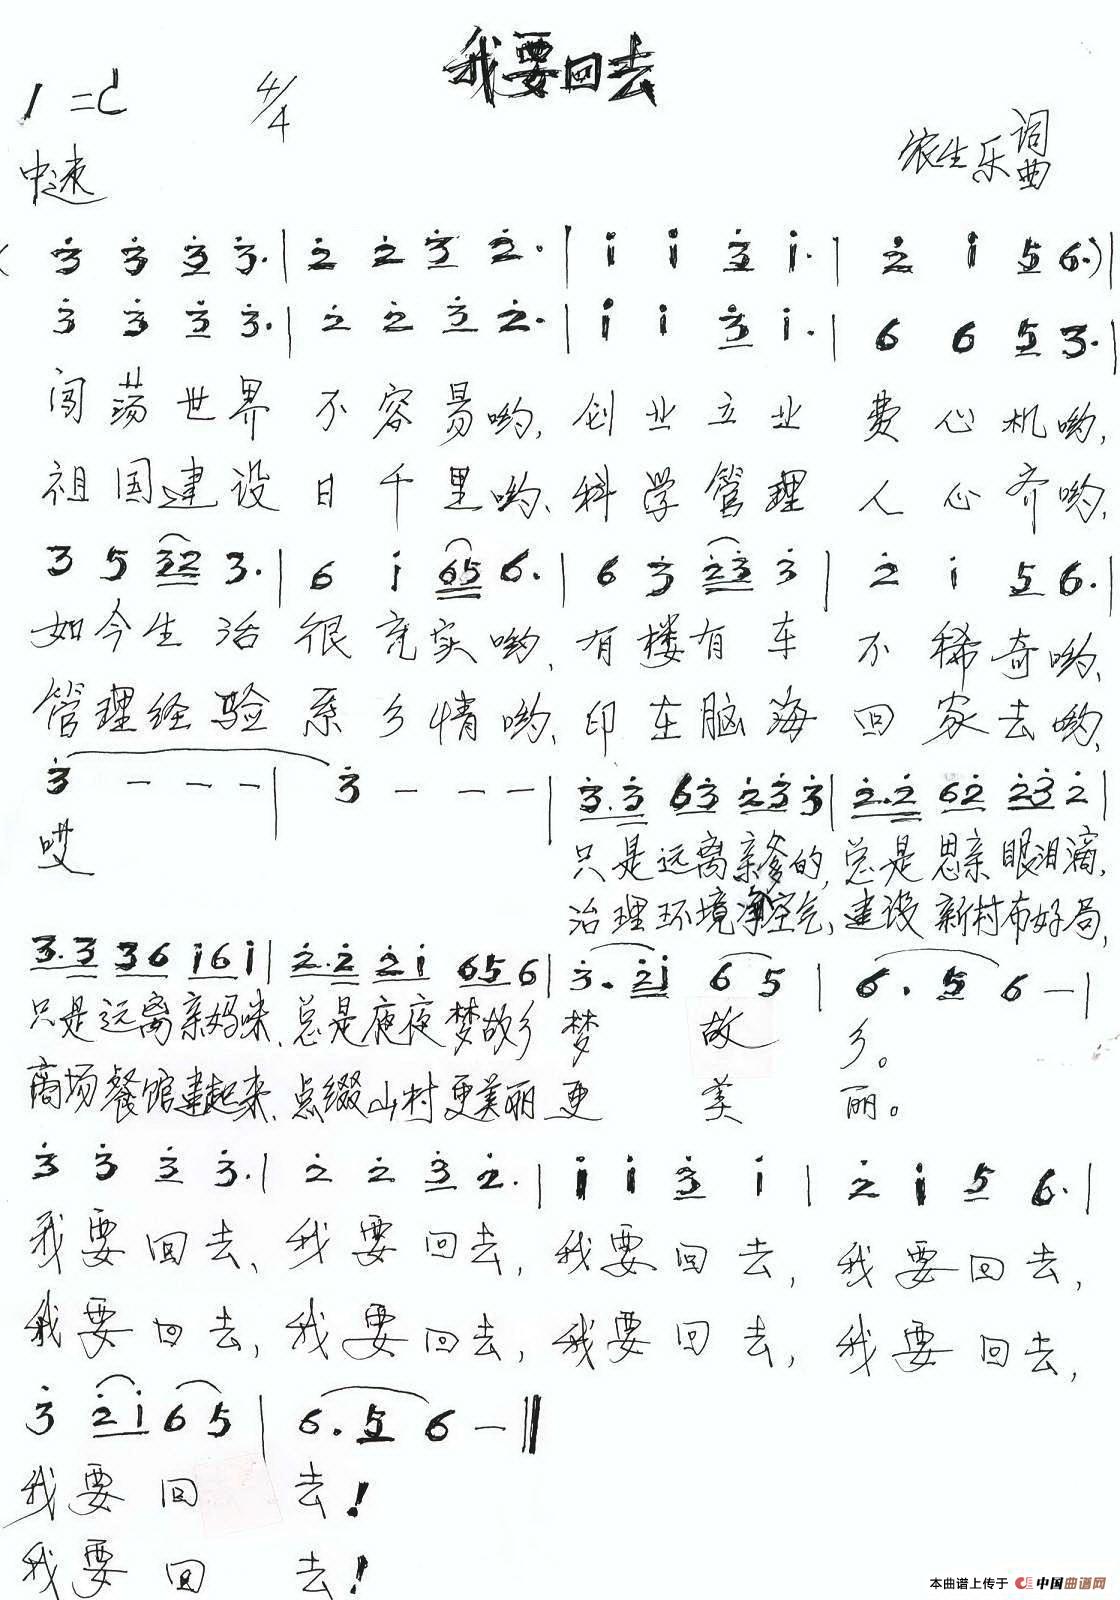 我要回去
1=C 4/4
农生乐 词曲
中速
( 3̇ 3̇ 3̇ 3̇. | 2̇ 2̇ 3̇ 2̇. | 1̇ 1̇ 3̇ 1̇. | 2̇ 1̇ 5 6. ) |
3̇ 3̇ 3̇ 3̇. | 2̇ 2̇ 3̇ 2̇. | 1̇ 1̇ 3̇ 1̇. | 6 6 5 3. |
闯荡世界 不容易哟, 创业立业 费心机哟,
祖国建设 日千里哟、科学管理 人心齐哟,
3 5 32 3. | 6 1̇ 65 6. | 6 3̇ 2̇3̇ 3̇ | 2̇ 1̇ 5 6. |
如今生活 很充实哟, 有楼有车 不稀奇哟、
管理经验 系乡情哟、印在脑海 回家去哟,
3̇ - - - | 3̇ - - - | 3̇.3̇ 63̇ 2̇3̇3̇ | 2̇.2̇ 62̇ 2̇3̇2̇ |
哎 只是远离亲爹的, 总是思亲眼泪滴,
治理环境净空气, 建设新村布好局,
3̇.3̇ 3̇6 1̇61̇ | 2̇.2̇ 2̇1̇ 656 | 3̇. 2̇1̇ 6 5 | 6. 5 6 - |
只是远离亲妈咪, 总是夜夜梦故乡 梦 故 乡。
商场餐馆建起来, 点缀山村更美丽 更 美 丽。
3̇ 3̇ 3̇ 3̇. | 2̇ 2̇ 3̇ 2̇. | 1̇ 1̇ 3̇ 1̇ | 2̇ 1̇ 5 6. |
我要回去、我要回去, 我要回去, 我要回去,
我要回去, 我要回去, 我要回去, 我要回去,
3̇ 2̇1̇ 6 5 | 6. 5 6 - ‖
我要回 去!
我要回 去!
本曲谱上传于 中国曲谱网